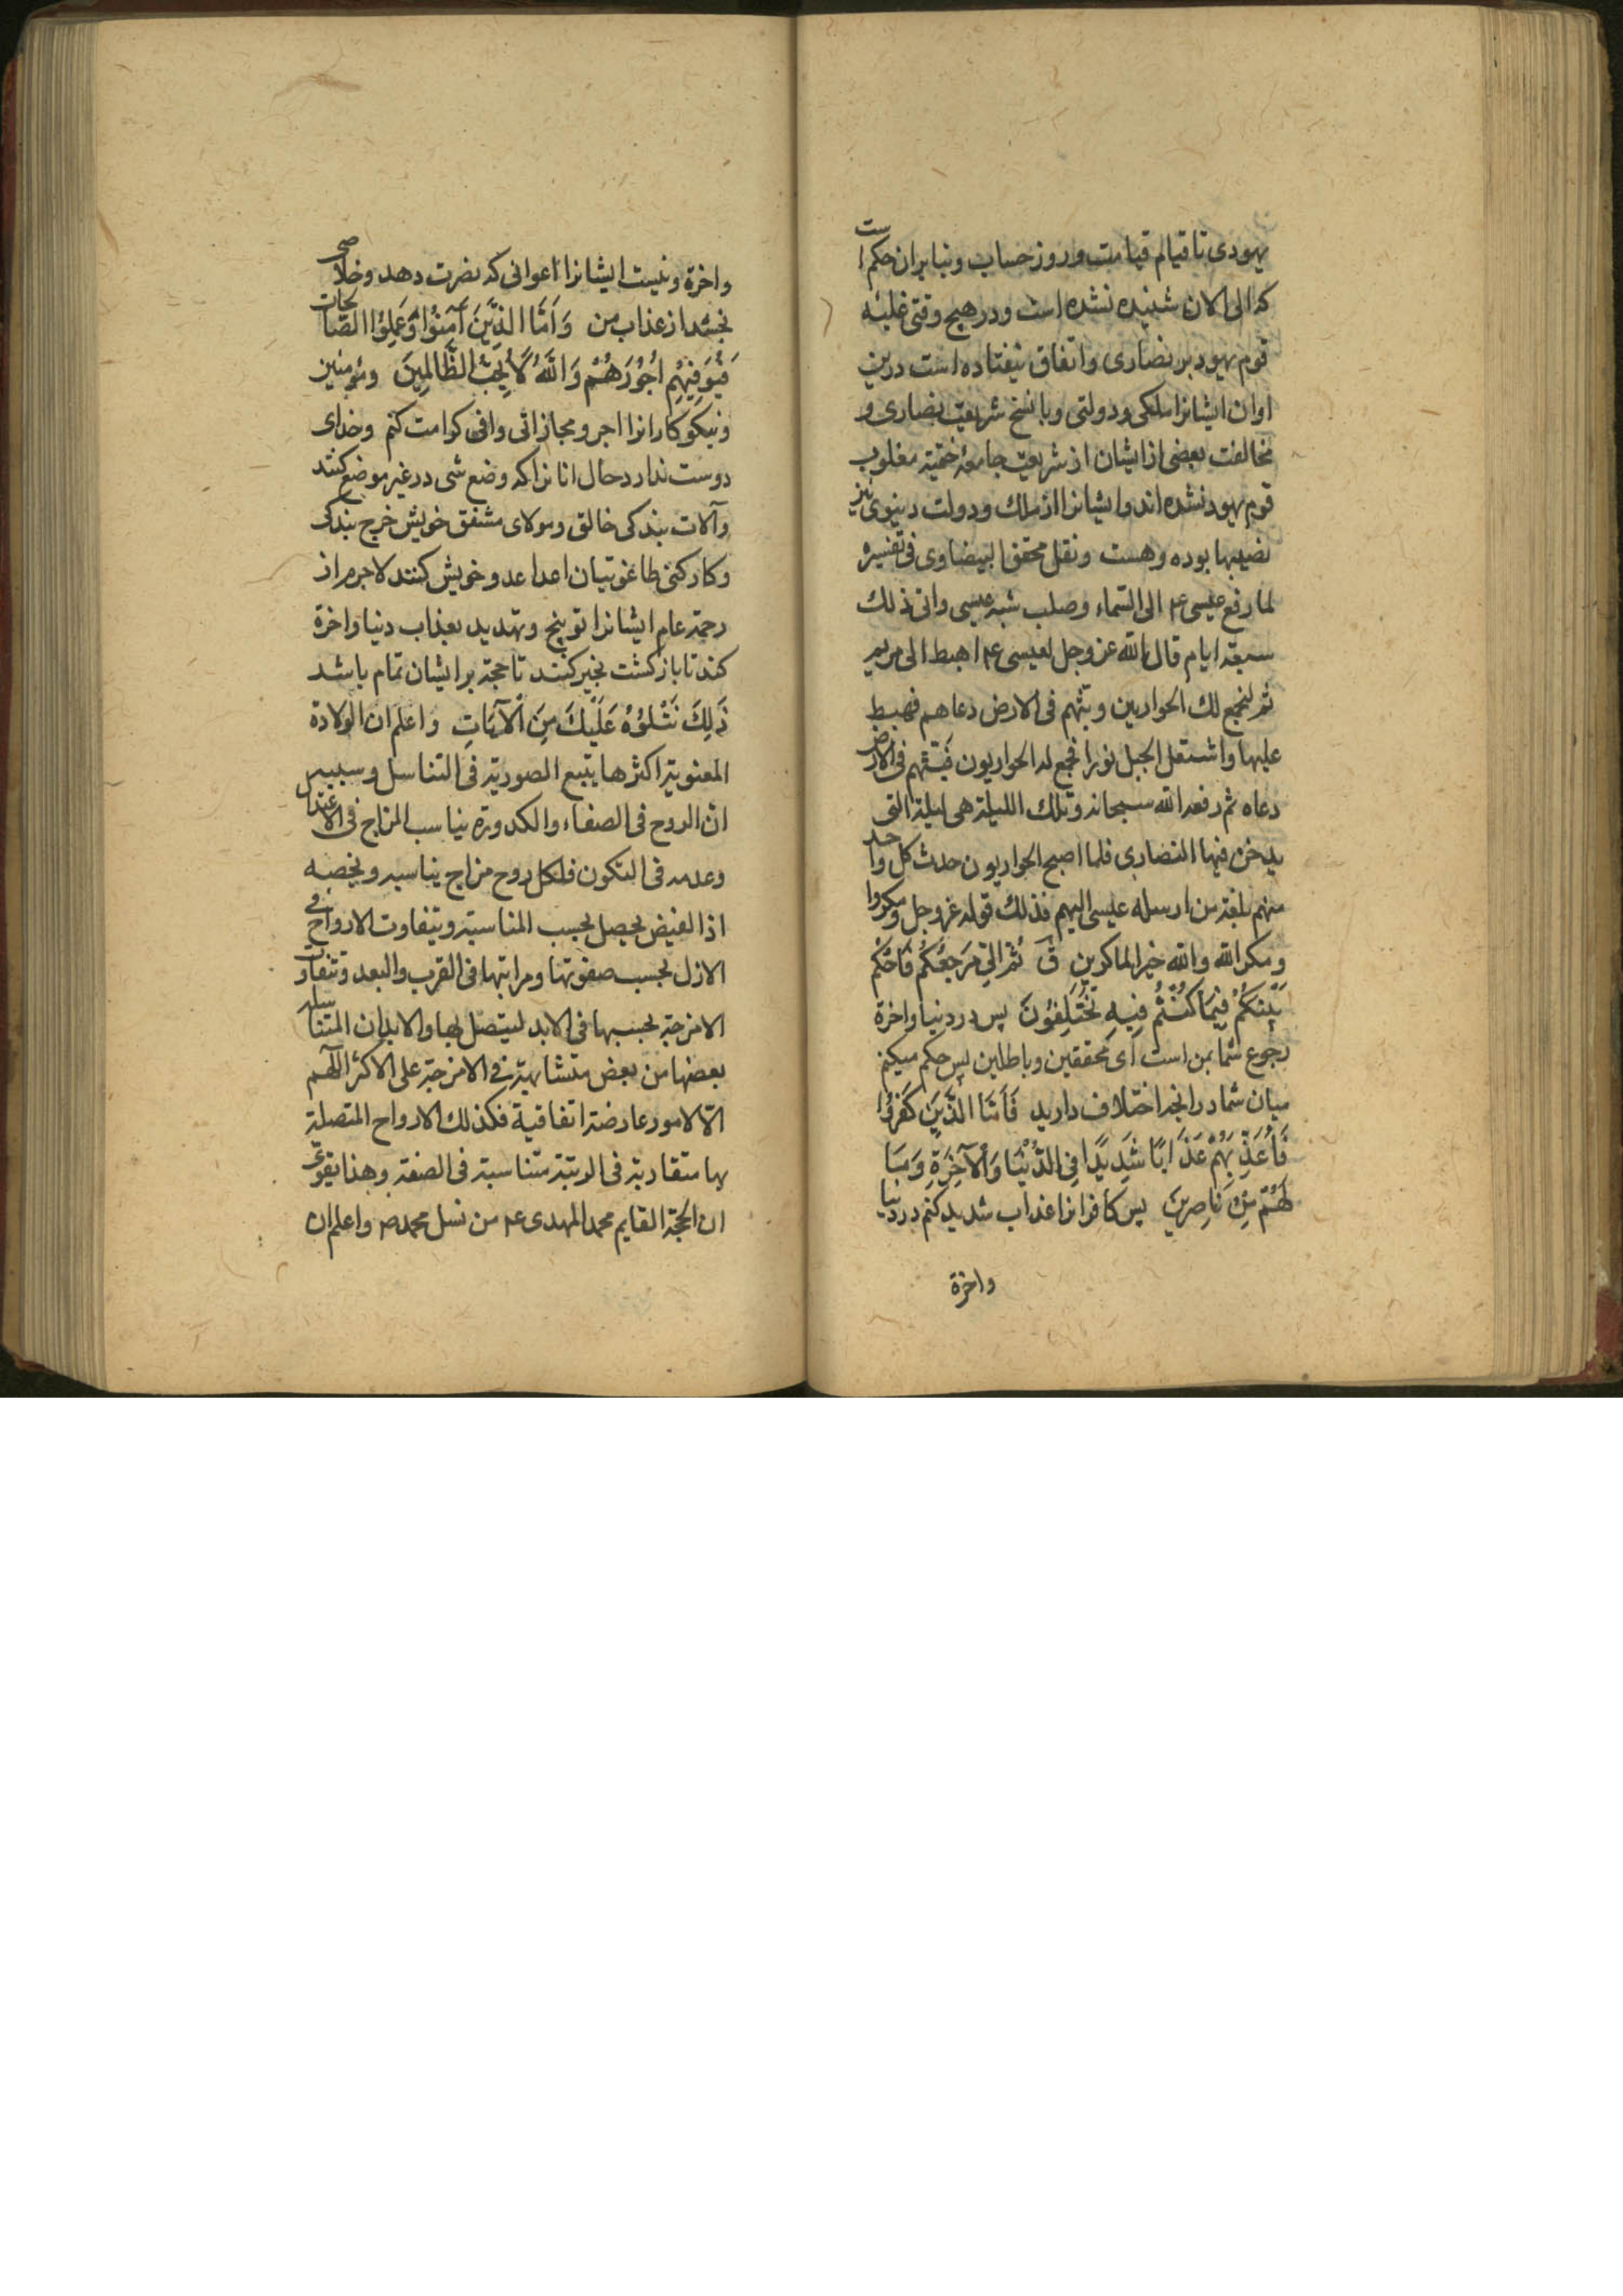 یهودی تا قیام قیامت و روز حساب و بنابران حکم است
که الی الان شنیده نشده است و در هیچ وقتی غلبهٔ
قوم یهود بر نصاری و اتفاق نیفتاده است درین
اوان ایشانرا ملکی و دولتی و با نسخ شریعت نصاری و
مخالفت بعضی از ایشان از شریعت جامعهٔ ختمیّة مغلوب
قوم یهود نشده اند و ایشانرا از ملک و دولت دنیوی نیز
نصیبها بوده و هست ونقل محقق البیضاوی فی تفسیره
لما رفع عیسی ع الی السّماء وصلب شبه عیسی واتی ذلك
سبعة ایام قال الله عز وجل لعیسی ع اهبط الی مریم
ثم لنجمع لك الحواریین وبثهم فی الارض دعاهم فهبط
علیها واشتعل الجبل نورا فجمع له الحواریون فبثهم فی الارض
دعاه ثم رفعه الله سبحانه وتلك اللیلة هی لیلة التی
یدخن فیها النصاری فلما اصبح الحواریون حدث کل واحد
منهم بلغة من ارسله عیسی الیهم فذلك قوله عز وجل ومکروا
ومکر الله والله خیر الماکرین قَ ثُمَّ اِلَیَّ مَرْجِعُکُمْ فَاَحْکُمُ
بَیْنَکُمْ فِیمَا کُنْتُمْ فِیهِ تَخْتَلِفُونَ پس در دنیا واخرة
رجوع شما بمن است ای محققین و باطلین پس حکم میکنم
میان شما در انچه اختلاف دارید فَاَمَّا الَّذِینَ کَفَرُوا
فَاُعَذِّبُهُمْ عَذَابًا شَدِیدًا فِی الدُّنْیَا وَالْآخِرَةِ وَمَا
لَهُمْ مِنْ نَاصِرِینَ پس کافرانرا عذاب شدید کنم در دنیا
واخرة
واخرة و نیست ایشانرا اعوانی که نصرت دهد و خلاصی
بخشد از عذاب من وَاَمَّا الَّذِینَ آمَنُوا وَعَمِلُوا الصَّالِحَاتِ
فَیُوَفِّیهِمْ اُجُورَهُمْ وَاللّٰهُ لَا یُحِبُّ الظَّالِمِینَ ومؤمنین
ونیکو کارانرا اجر و مجازاتی وافی کرامت کنم وخدای
دوست ندارد حال انانرا که وضع شی در غیر موضع کنند
وآلات بندکی خالق ومولای مشفق خویش خرج بندکی
وکارکنی طاغوتیان اعدا عدو خویش کنند لاجرم از
رحمة عام ایشانرا توبیخ وتهدید بعذاب دنیا واخرة
کند تا بازکشت بخیر کنند تا حجة بر ایشان تمام باشد
ذٰلِكَ نَتْلُوهُ عَلَیْكَ مِنَ الْآیَاتِ واعلم ان الولادة
المعنویة اکثرها یتبع الصوریة فی التناسل وسببه
انّ الروح فی الصفاء والکدورة یناسب المزاج فی الاعتدال
وعدمه فی التکون فلکل روح مزاج یناسبه ویخصه
اذ الفیض یحصل بحسب المناسبة ویتفاوت الارواح فی
الازل بحسب صفوتها ومراتبها فی القرب والبعد وتتفاوت
الامزجة بحسبها فی الابد لیتصل بها والابدان المتناسلة
بعضها من بعض متشابهة فی الامزجة علی الاکثر اللّهم
الّا لامور عارضة اتفاقیة فکذلك الارواح المتصلة
بها متقاربة فی الرتبة متناسبة فی الصفة وهذا یقوی
ان الحجة القایم محمد المهدی ع من نسل محمد ص واعلم ان